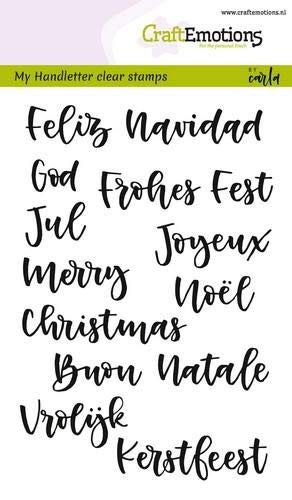 www.craftemotions.nl
CraftEmotions
For the personal touch
My Handletter clear stamps
BY carla
Feliz Navidad
God
Frohes Fest
Jul
Joyeux
Merry
Noël
Christmas
Buon Natale
Vrolijk
Kerstfeest